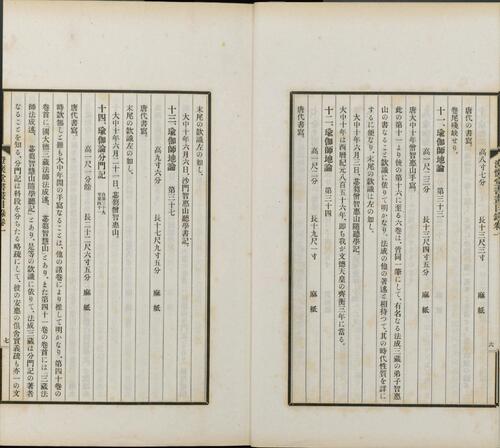 高八寸七分　　長十三尺三寸
唐代の書寫。
卷尾殘缺せり。
十一、瑜伽師地論　第三十三
高一尺二三分　　長十三尺四寸五分　　麻紙
唐大中年間僧智惠山手寫。
此の第十一より後の第十六に至る六卷は、皆同一筆にして、有名なる法成三藏の弟子智惠
山の書なること欵識に依りて明かなり、法成の他の著述と相待つて、其の時代性質を詳に
するに便なり、末尾の欵識は左の如し。
大中十年六月三日、苾蒭僧智惠山隨聽學記、
大中十年は西曆紀元八百五十六年、卽も我が文德天皇の齊衡三年に當る。
十二、瑜伽師地論　第三十四
高一尺二分　　長十九尺一寸　　麻紙
唐代書寫。
六
末尾の欵識左の如し。
大中十年六月六日、沙門智惠山聽學書記、
十三、瑜伽師地論　第三十七
高九寸六分　　長十七尺九寸五分　　麻紙
唐代書寫。
末尾の欵識左の如し。
大中十年六月二十一日、苾蒭僧智惠山、
十四、瑜伽論分門記
高一尺一寸餘　　長二十二尺六寸五分　　麻紙
唐代書寫。
時欵無しと雖も大中年間の手寫なることは、他の諸卷により推して明かなり、第四十卷の
卷首に國大德三藏法師法成述、苾蒭智慧山隨學聽記とあり、また第四十一卷の卷首には、三藏法
師法成述、苾蒭僧智慧山とあり、是等の欵識に依りて、法成三藏は分門記の著者
なることを知る、分門記は科段を分ちたる略疏にして、彼の安惠の俱舍實義疏も亦一の文
七